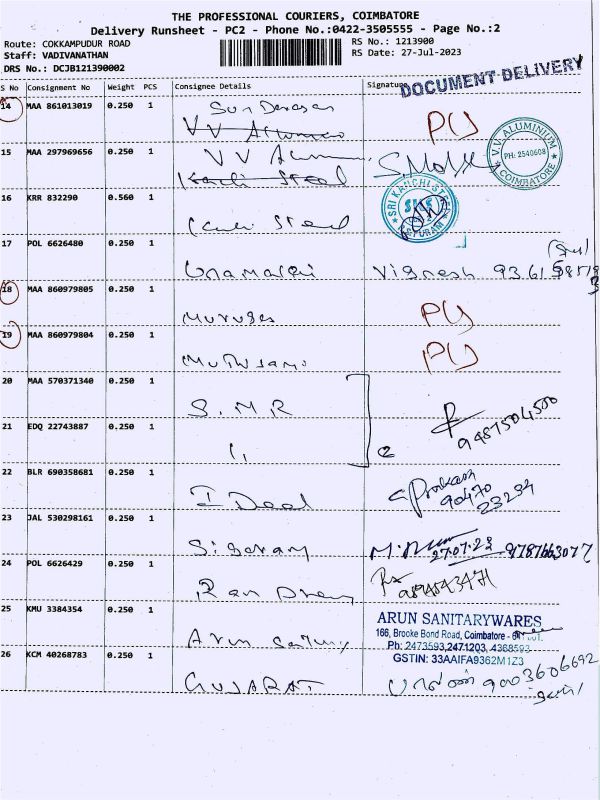 THE PROFESSIONAL COURIERS, COIMBATORE
Delivery Runsheet - PC2 - Phone No.:0422-3505555 - Page No.:2
Route: COKKAMPUDUR ROAD
Staff: VADIVANATHAN
DRS No.: DCJB121390002
RS No.: 1213900
RS Date: 27-Jul-2023
DOCUMENT DELIVERY
S No Consignment No Weight PCS Consignee Details Signature
14 MAA 861013019 0.250 1
15 MAA 297969656 0.250 1 V V
V.V. ALUMINIUM
PH: 2540608
COIMBATORE
16 KRR 832290 0.560 1
SRI KANCHI STEEL
SKS
17 POL 6626480 0.250 1 Vignesh
18 MAA 860979805 0.250 1 Muruges
19 MAA 860979804 0.250 1 Muthusamy
20 MAA 570371340 0.250 1 S.M.R
21 EDQ 22743887 0.250 1 9487504500
22 BLR 690358681 0.250 1 I Deal Prakash
90470
23234
23 JAL 530298161 0.250 1 27.07.23 9787663077
24 POL 6626429 0.250 1
25 KMU 3384354 0.250 1 Arun
ARUN SANITARYWARES
166, Brooke Bond Road, Coimbatore -
Ph: 2473593,2471203, 4368593
GSTIN: 33AAIFA9362M1Z3
26 KCM 40268783 0.250 1 GUJARAT 9003606692